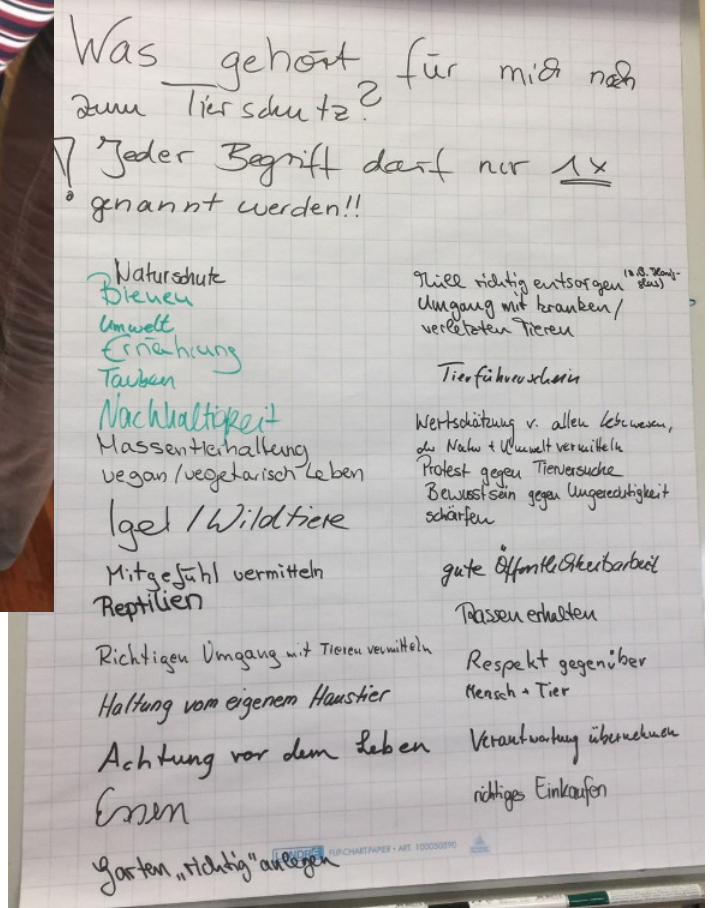 Was gehört für mich noch
zum Tierschutz?
! Jeder Begriff darf nur 1x
genannt werden!!
Naturschutz
Bienen
Umwelt
Ernährung
Tauben
Nachhaltigkeit
Massentierhaltung
vegan/vegetarisch Leben
Igel / Wildtiere
Mitgefühl vermitteln
Reptilien
Richtigen Umgang mit Tieren vermitteln
Haltung vom eigenem Haustier
Achtung vor dem Leben
Essen
Garten „richtig" anlegen
Müll richtig entsorgen (z.B.
Umgang mit kranken/
verletzten Tieren
Tierführerschein
Wertschätzung v. allen Lebewesen,
der Natur + Umwelt vermitteln
Protest gegen Tierversuche
Bewusstsein gegen Ungerechtigkeit
schärfen
gute Öffentlichkeitsarbeit
Rassen erhalten
Respekt gegenüber
Mensch + Tier
Verantwortung übernehmen
richtiges Einkaufen
LANDRÉ FLIP-CHART-PAPIER • ART. 100050590